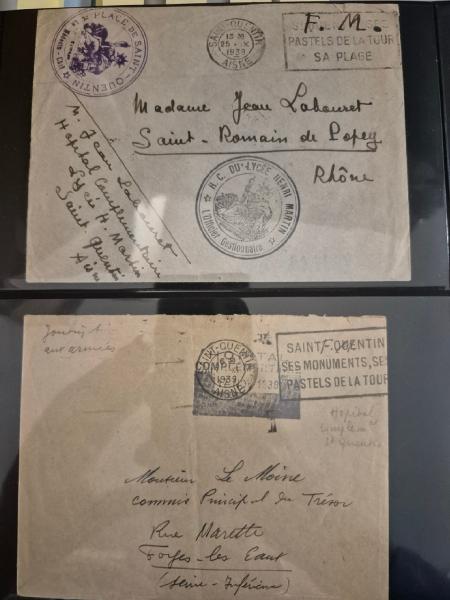 PLACE DE SAINT-QUENTIN
SAINT-QUENTIN
25 - IX
1939
AISNE
F. M.
PASTELS DE LA TOUR
SA PLAGE
Madame Jean Labouret
Saint-Romain de Popey
Rhône
M. Jean Labouret
Hôpital Complémentaire
Lycée H. Martin
Saint Quentin
Aisne
H.C. DU LYCÉE HENRI MARTIN
L'Officier Gestionnaire
aux armées
SAINT-QUENTIN
1939
AISNE
SAINT-QUENTIN
F.M.
SES MONUMENTS, SES
PASTELS DE LA TOUR
Hôpital
St Quentin
Monsieur Le Moine
commis Principal du Trésor
Rue Marette
Forges-les Eaux
(Seine-Inférieure)